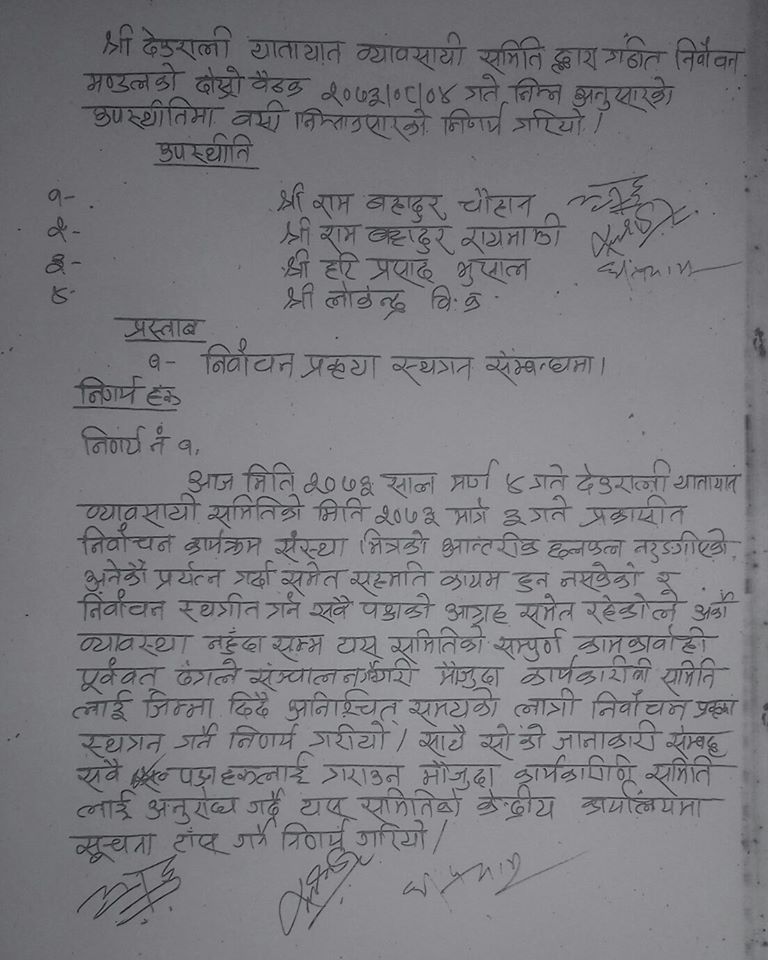 श्री देउराली यातायात व्यावसायी समिति द्वारा गठीत निर्वाचन
मण्डलको दोस्रो बैठक २०७३/०८/०४ गते निम्न अनुसारको
उपस्थीतिमा वसी निम्नानुसारको निर्णय गरियो।
उपस्थीति
१- श्री राम बहादुर चौहान
२- श्री राम बहादुर रायमाझी
३- श्री हरि प्रसाद भुसाल
४- श्री लोकेन्द्र वि.क.
प्रस्ताब
१- निर्वाचन प्रकृया स्थगन संम्बन्धमा।
निर्णय हरु
निर्णय नं १.
आज मिति २०७३ साल मार्ग ४ गते देउराली यातायात
व्यावसायी समितिको मिति २०७३ मार्ग ३ गते प्रकासीत
निर्वाचन कार्यक्रम संस्था भित्रको आन्तरीक छलफल नटुङगीएको,
अनेकौ प्रर्यत्न गर्दा समेत सहमति कायम हुन नसकेको र
निर्वाचन स्थगीत गर्न सवै पक्षको आग्रह समेत रहेकोले अर्को
व्यावस्था नहुँदा सम्म यस समितिको सम्पुर्ण कामकार्वाही
पूर्ववत ढंगले संञ्चालन गर्नेगरी मौजुदा कार्यकारीणी समिति
लाई जिम्मा दिदै अनिश्चित् समयको लागी निर्वाचन प्रकृया
स्थगन गर्ने निर्णय गरीयो। साथै सो को जानाकारी संम्बद्ध
सवै पक्षहरुलाई गराउन मौजुदा कार्यकारीणि समिति
लाई अनुरोध गर्दै यस समितिको केन्द्रीय कार्यालयमा
सूचना टाँस गर्ने निर्णय गरियो।